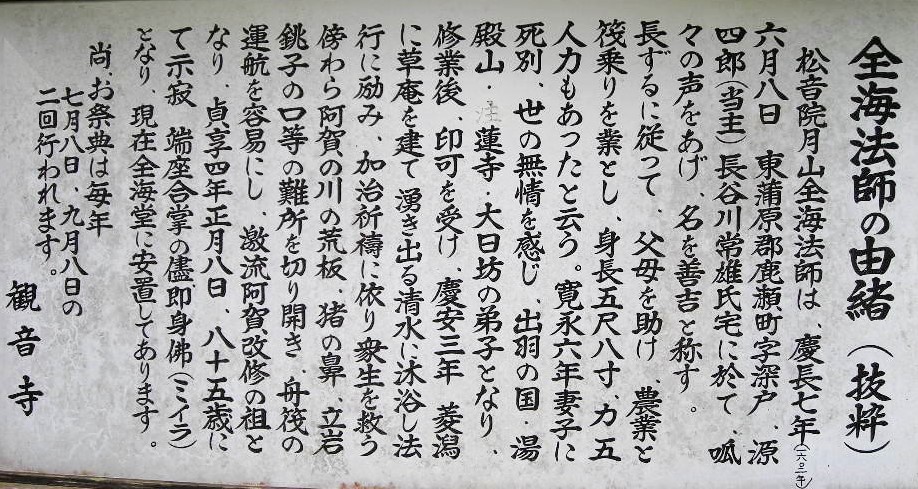 全海法師の由緒（抜粋）
松音院月山全海法師は、慶長七年(一六〇二年)
六月八日　東蒲原郡鹿瀬町字深戸、源
四郎（当主）長谷川常雄氏宅に於て、呱
々の声をあげ、名を善吉と称す。
長ずるに従って、父母を助け、農業と
筏乗りを業とし、身長五尺八寸、力五
人力もあったと云う。寛永六年妻子に
死別、世の無情を感じ、出羽の国・湯
殿山・注蓮寺・大日坊の弟子となり、
修業後、印可を受け、慶安三年　菱潟
に草庵を建て湧き出る清水に沐浴し法
行に励み、加治祈禱に依り衆生を救う
傍わら阿賀の川の荒板、猪の鼻、立岩
銚子の口等の難所を切り開き、舟筏の
運航を容易にし、激流阿賀、改修の祖と
なり、貞享四年正月八日、八十五歳に
て示寂　端座合掌の儘即身佛（ミイラ）
となり、現在全海堂に安置してあります。
尚、お祭典は毎年
七月八日、九月八日の
二回行われます。
観音寺